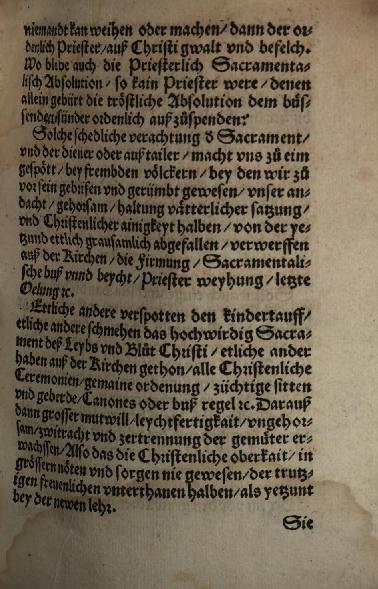 niemandt kan weihen oder machen/ dann der or-
denlich Priester/ auß Christi gwalt vnd befelch.
Wo blibe auch die Priesterlich Sacramenta-
lisch Absolution/ so kain Priester were/ denen
allein gebürt die tröstliche Absolution dem büs-
senden sünder ordenlich auß zůspenden?
Solche schedliche verachtung d Sacrament/
vnd der diener oder auß tailer/ macht vns zů eim
gespött/ bey frembden völckern/ bey den wir zů
vor sein gebrisen vnd gerümbt gewesen/ vnser an-
dacht/ gehorsam/ haltung vätterlicher satzung/
vnd Christenlicher ainigkeyt halben/ von der ye-
tzund ettlich grausamlich abgefallen/ verwerffen
auß der Kirchen/ die Firmung/ Sacramentali-
sche bůß vnnd beycht/ Priester weyhung/ letzte
Oelung ꝛc.
Ettliche andere verspotten den kindertauff/
etliche andere schmehen das hochwirdig Sacra-
ment deß Leybs vnd Blůt Christi/ etliche ander
haben auß der Kirchen gethon/ alle Christenliche
Ceremonien/ gemaine ordenung/ züchtige sitten
vnd geberde/ Canones oder bůß regel ꝛc. Darauß
dann grosser mutwill/ leychtfertigkait/ vngehor-
sam/ zwitracht vnd zertrennung der gemüter er-
wachssen/ Also das die Christenliche oberkait/ in
grössern nöten vnd sorgen nie gewesen/ der trutz-
igen freuenlichen vnterthanen halben/ als yetzunt
bey der newen lehr.
Sie